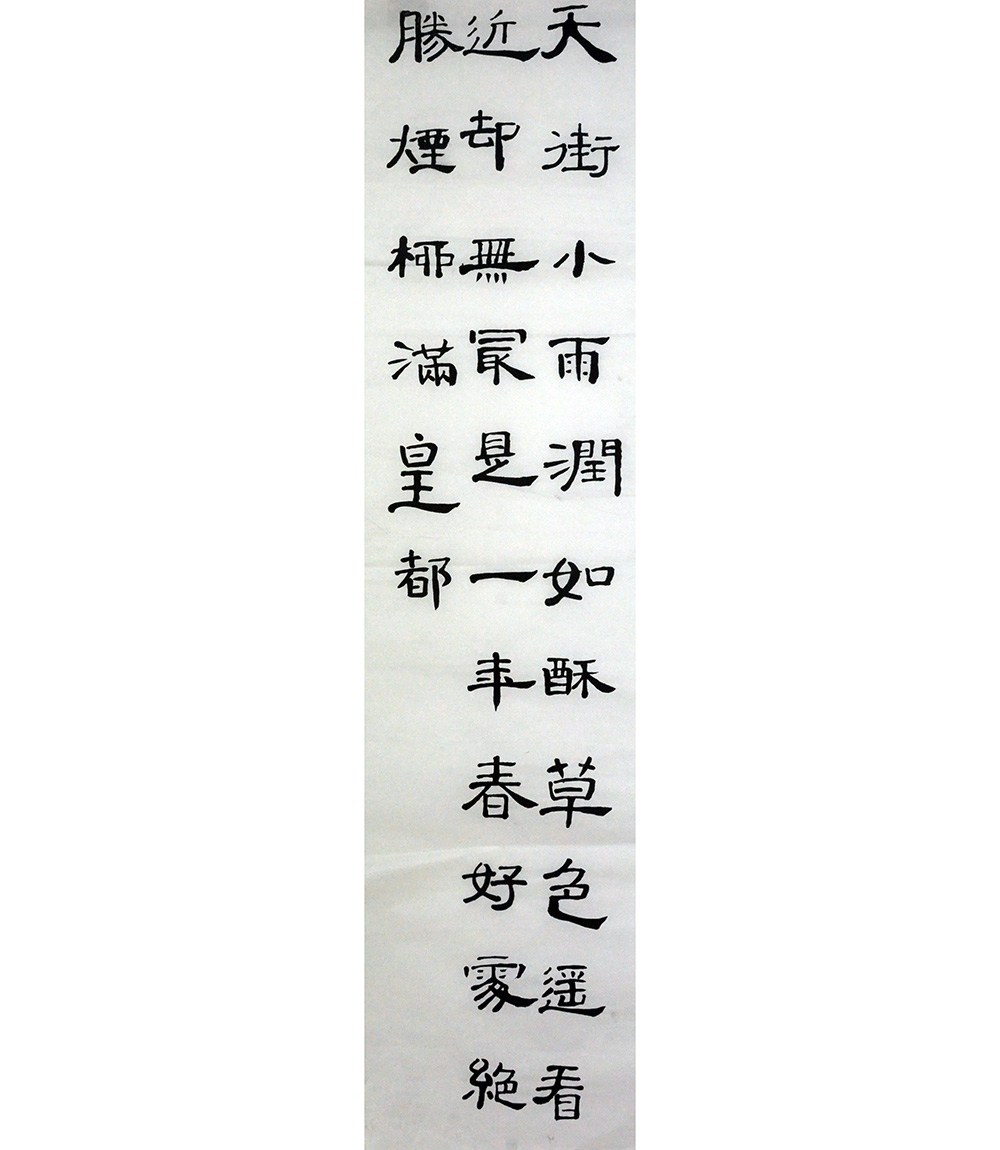 天街小雨潤如酥草色遥看
近却無冣是一年春好處絶
勝煙柳滿皇都